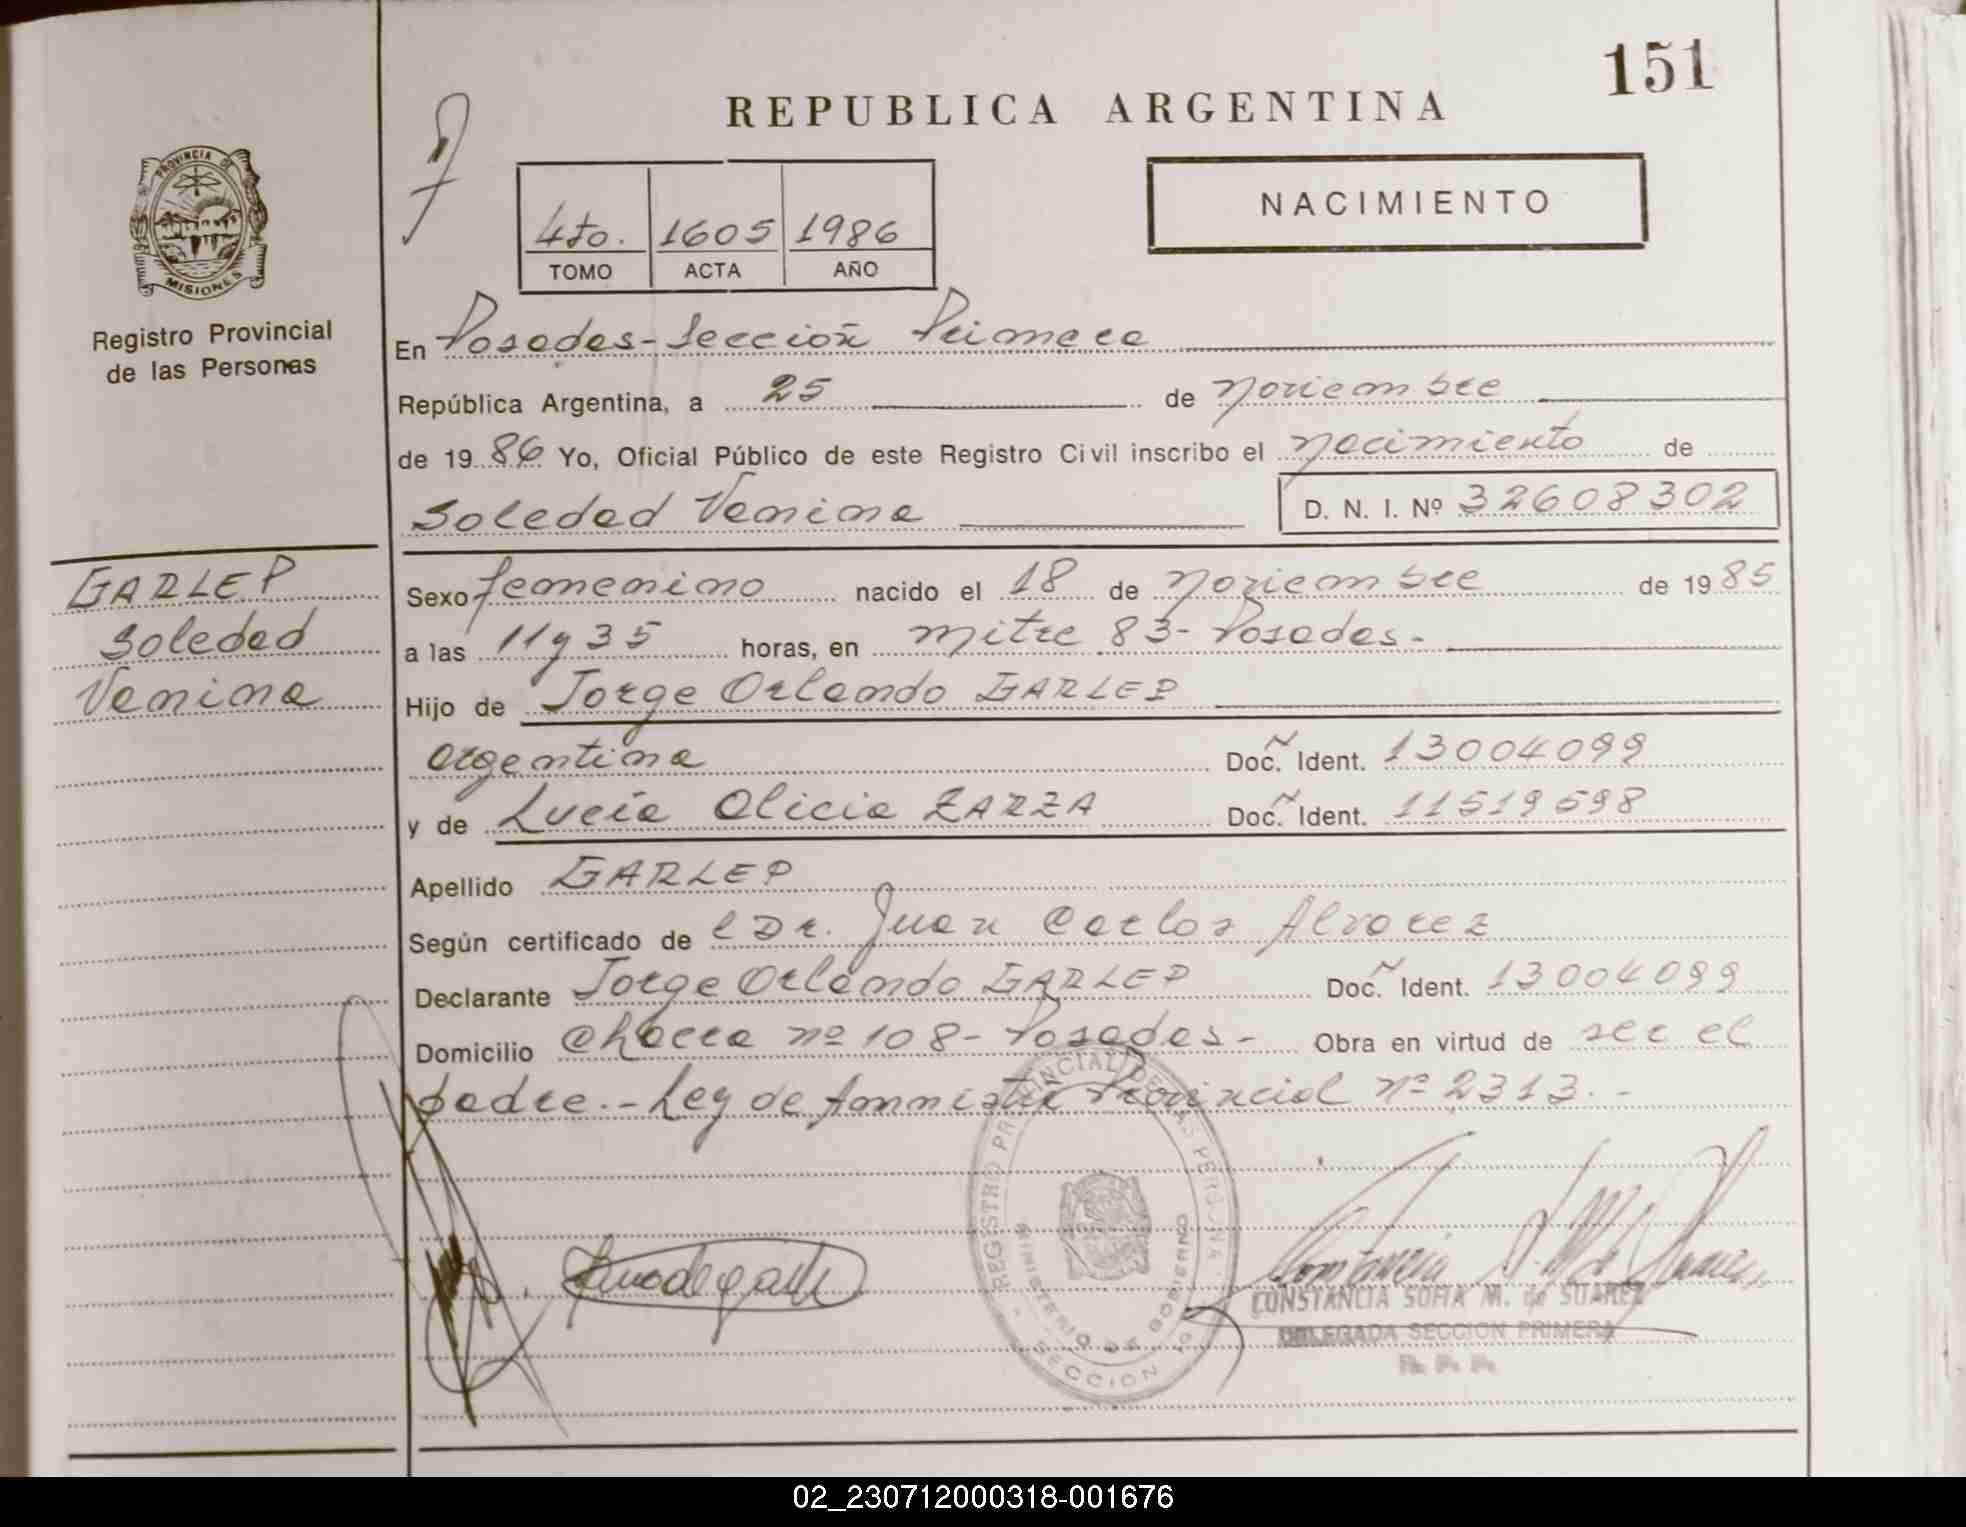 151
REPUBLICA ARGENTINA
PROVINCIA DE
MISIONES
Registro Provincial
de las Personas
4to. 1605 1986
TOMO ACTA AÑO
NACIMIENTO
En Posadas-Sección Primera
República Argentina, a 25 de noviembre
de 1986 Yo, Oficial Público de este Registro Civil inscribo el nacimiento de
Soledad Vanina D. N. I. Nº 32608302
GARLEP
Soledad
Vanina
Sexo femenino nacido el 18 de noviembre de 1985
a las 11 y 35 horas, en mitre 83- Posadas-
Hijo de Jorge Orlando GARLEP
argentina Doc. Ident. 13004099
y de Lucía Alicia ZARZA Doc. Ident. 11519598
Apellido GARLEP
Según certificado de l Dr. Juan Carlos Alvarez
Declarante Jorge Orlando GARLEP Doc. Ident. 13004099
Domicilio Chacra nº 108- Posadas- Obra en virtud de ser el
padre.- Ley de Amnistía Provincial nº 2313.-
REGISTRO PROVINCIAL DE LAS PERSONAS
MINISTERIO DE GOBIERNO
SECCION 1º
CONSTANCIA SOFIA M. de SUAREZ
DELEGADA SECCION PRIMERA
02_230712000318-001676